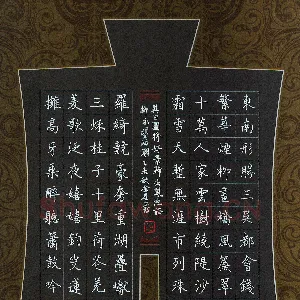 東南形勝三吳都會錢
繁華煙柳畫橋風簾翠
十萬人家雲樹繞隄沙
霜雪天塹無涯市列珠
羅綺競豪奢重湖疊巘
三秌桂子十里荷花羌
菱歌泛夜嬉嬉釣叟蓮
擁高牙乘醉聽簫鼓吟